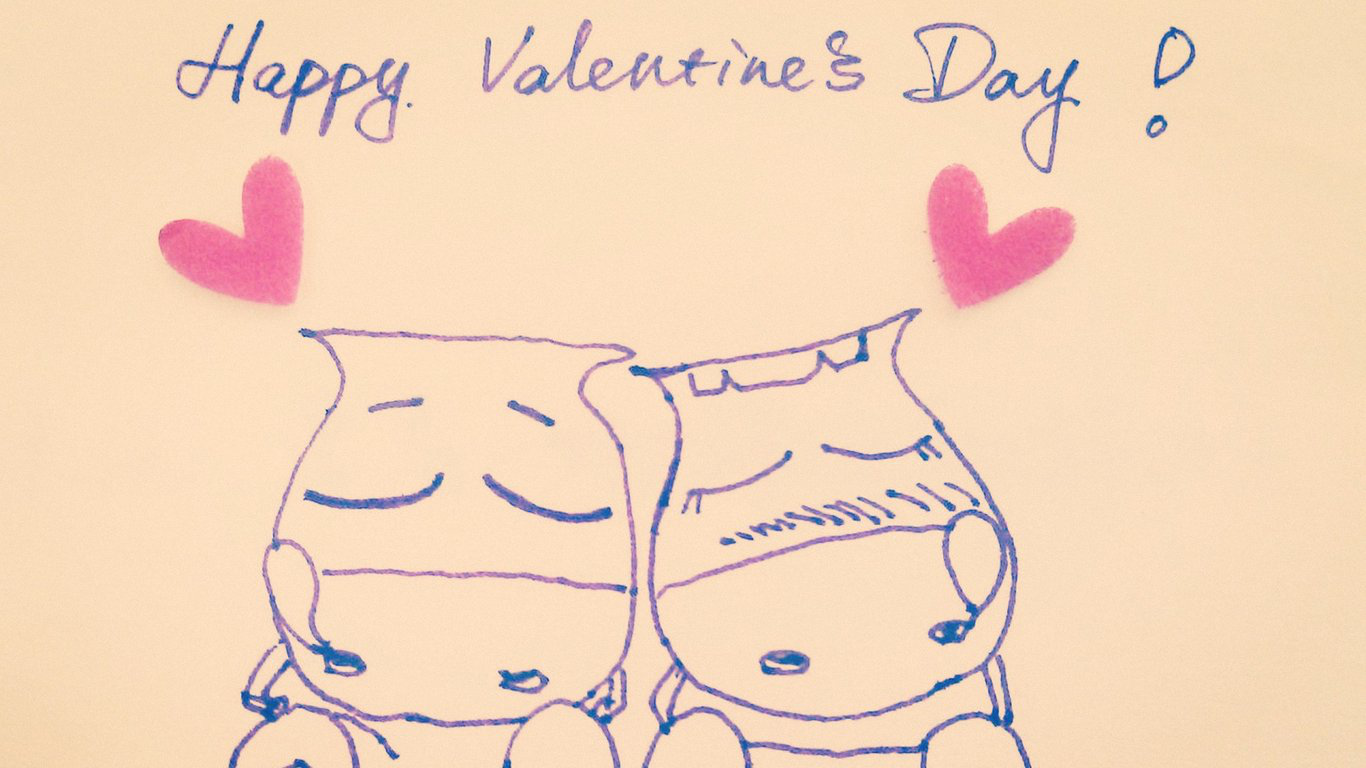 Happy Valentine's Day !